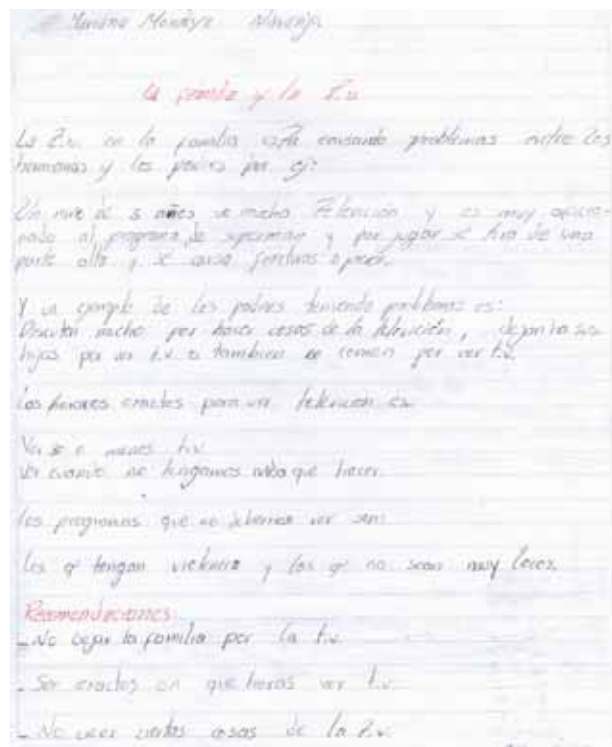 Montoya Naranjo
La familia y la T.v.
La T.v. en la familia está causando problemas entre los
hermanos y los padres por ej:
Un niño de 3 años ve mucha Televicion y es muy aficio
nado al programa de superman y por jugar se tira de una
parte alta y se causa
Y un ejemplo de los padres teniendo problemas es:
Discuten mucho por hacer cosas de la televición, dejan ha sus
hijos por ver t.v. o tambien no comen por ver t.v.
Las horas exactas para ver televicion es
Ver t.v.
Ver cuando no tengamos nada que hacer.
Los programas que no debemos ver son:
Los q' tengan violencia y los q' no sean muy
Recomendaciones:
- No dejar la familia por la t.v.
- Ser exactos en que horas ver t.v.
- No creer ciertas cosas de la T.v.